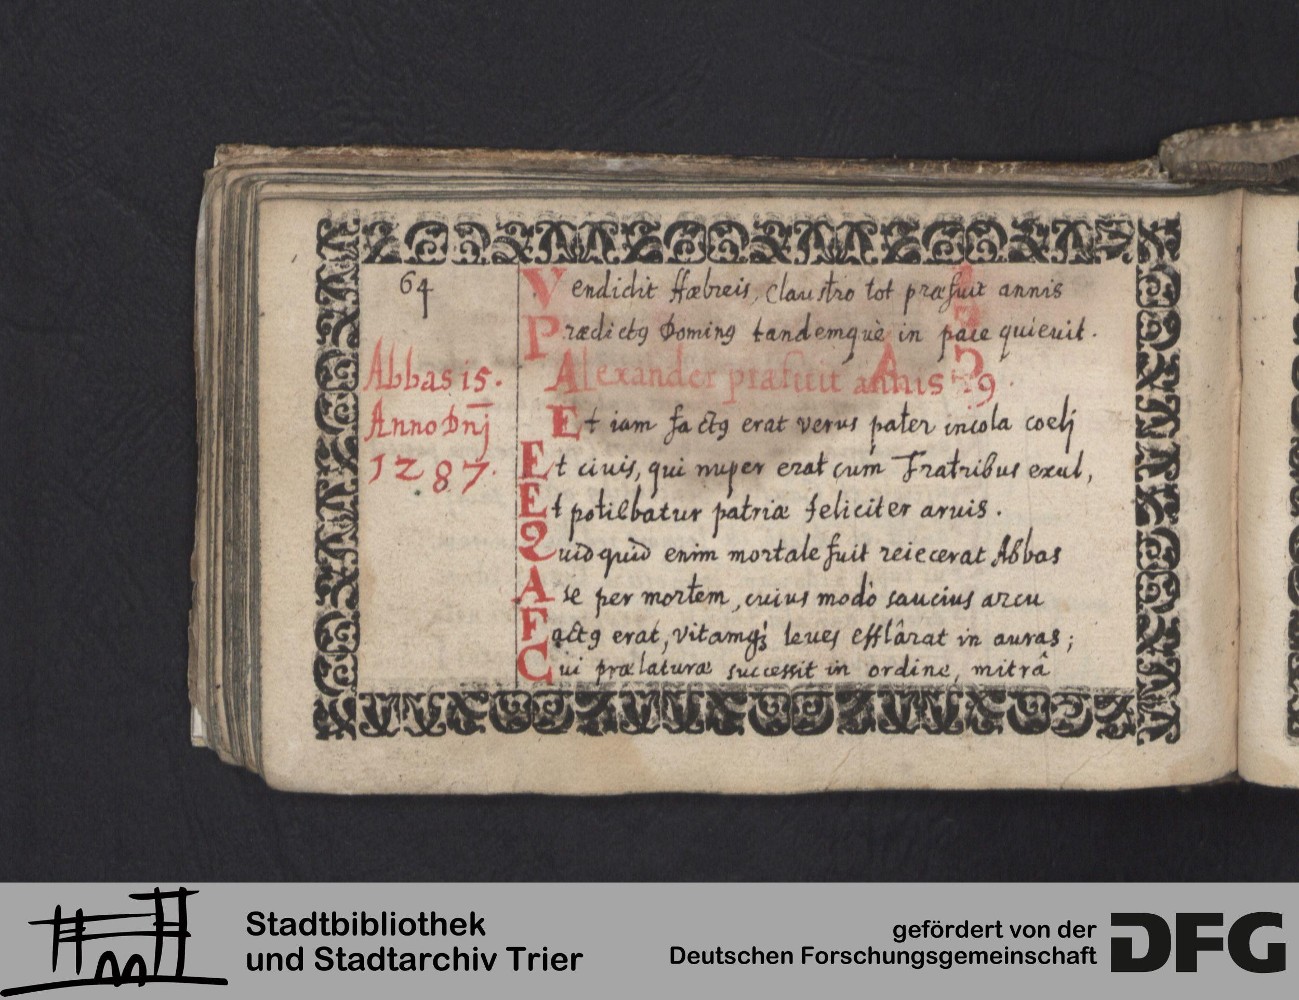 64
Vendidit Hæbreis, Claustro tot præfuit annis
Prædictꝯ Dominꝯ tandemquè in pace quieuit.
Abbas 15.
Alexander præfuit annis
Anno Dnj
Et iam factꝯ erat verus pater incola coelj
1287.
Et ciuis, qui nuper erat cum Fratribus exul,
Et potiebatur patriæ feliciter aruis.
Quidquid enim mortale fuit reiecerat Abbas
A se per mortem, cuius modò saucius arcu
Factꝯ erat, vitamq; leues efflârat in auras;
Cui prælaturæ successit in ordine, mitrâ
Stadtbibliothek
und Stadtarchiv Trier
gefördert von der
Deutschen Forschungsgemeinschaft
DFG